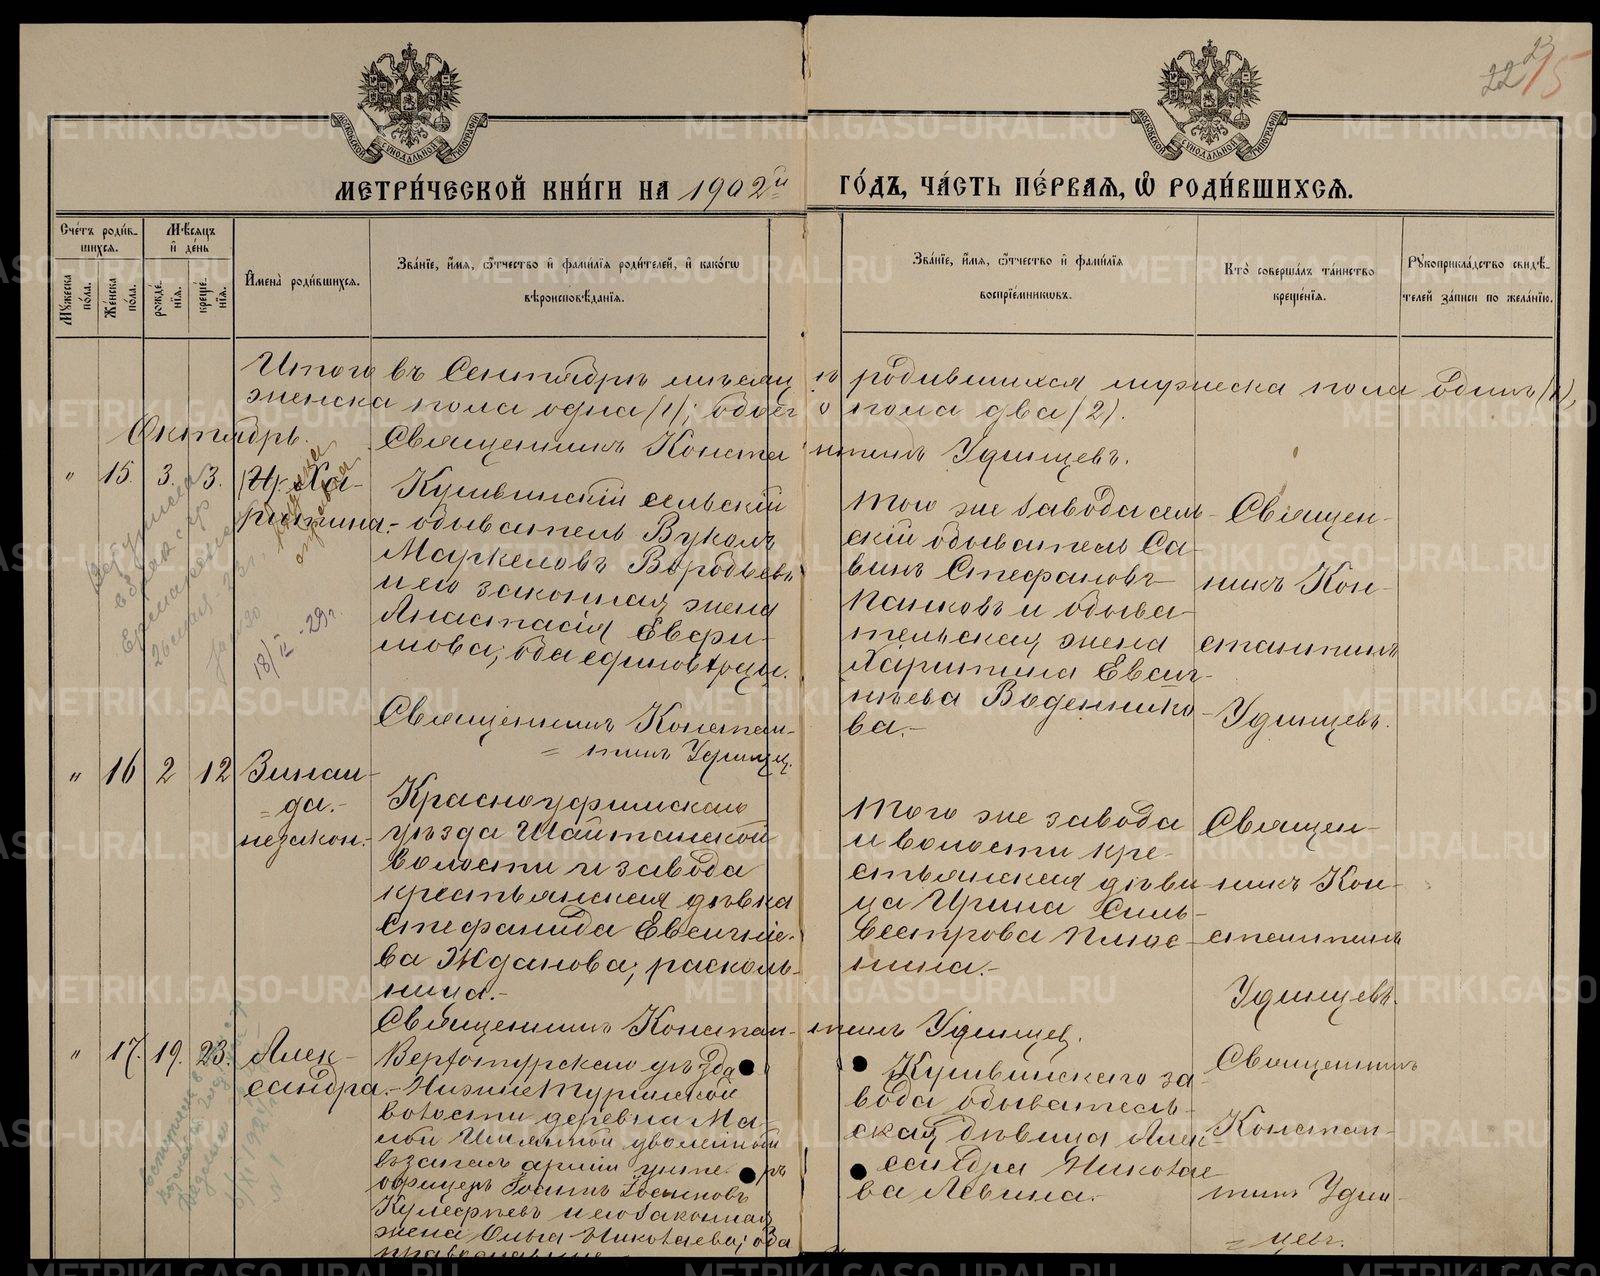 22
23/5
МЕТРИ́ЧЕСКОЙ КНИ́ГИ НА 1902й ГО́ДЪ, ЧА́СТЬ ПЕ́РВАѦ, Ѽ РОДИ́ВШИХСѦ.
Сче́тъ роди́вшихсѧ.
Мꙋ́жеска по́ла.
Же́нска по́ла.
Мѣ́сѧцъ и҆ де́нь
рожде́нїѧ.
креще́нїѧ.
И҆мена̀ роди́вшихсѧ.
Зва́нїе, и҆́мѧ, ѻ҆́тчество и҆ фами́лїѧ роди́телей, и҆ како́гѡ
вѣроисповѣ́данїѧ.
Зва́нїе, и҆́мѧ, ѻ҆́тчество и҆ фами́лїѧ
воспрїе́мникѡвъ.
Кто̀ соверша́лъ та́инство
креще́нїѧ.
Рꙋкоприкла́дство свидѣ́телей за́писи по жела́нїю.
Итого въ Сентябрѣ мѣсяцѣ родившихся мужеска пола одинъ (1),
женска пола одна (1); обоего пола два (2).
Октябрь.
Священникъ Константинъ Удинцевъ.
" 15. 3. 13.
Ха-
ритина.-
Кушвинскій сельскій
обыватель Вуколъ
Маркеловъ Воробьевъ
и его законная жена
Анастасія Евфи-
мова; оба единовѣрцы.
Священникъ Констан-
= тинъ Удинцев.
Того же завода сель-
скій обыватель Са-
винъ Стефановъ
Панковъ и обыва-
тельская жена
Харитина Евсиг-
нѣева Воденнико-
ва.-
Священ-
никъ Кон-
стантинъ
Удинцевъ.
18/II-29г.
" 16 2 12
Зинаи-
= да.-
незакон.-
Красноуфимскаго
уѣзда Шайтанской
волости и завода
крестьянская дѣвка
Стефанида Евсигнѣе-
ва Жданова; расколь-
ница.-
Священникъ Константинъ Удинцев.
Того же завода
и волости кре-
стьянская дѣви-
ца Ирина Силь-
вестрова Плюс-
нина.-
Священ-
никъ Кон-
стантинъ
Удинцевъ.
" 17. 19. 23.
Алек-
сандра.-
Верхотурскаго уѣзда
Нижнетуринской
волости деревни Ма-
лой Именной уволенный
въ запасъ арміи унтеръ
офицеръ Іоаннъ Іосифовъ
и его законная
жена Ольга Николаева; оба
православные
Кушвинскаго за-
вода обыватель-
ская дѣвица Алек-
сандра Николае-
ва Левина.-
Священникъ
Констан-
тинъ Удин-
= цевъ.
METRIKI.GASO-URAL.RU